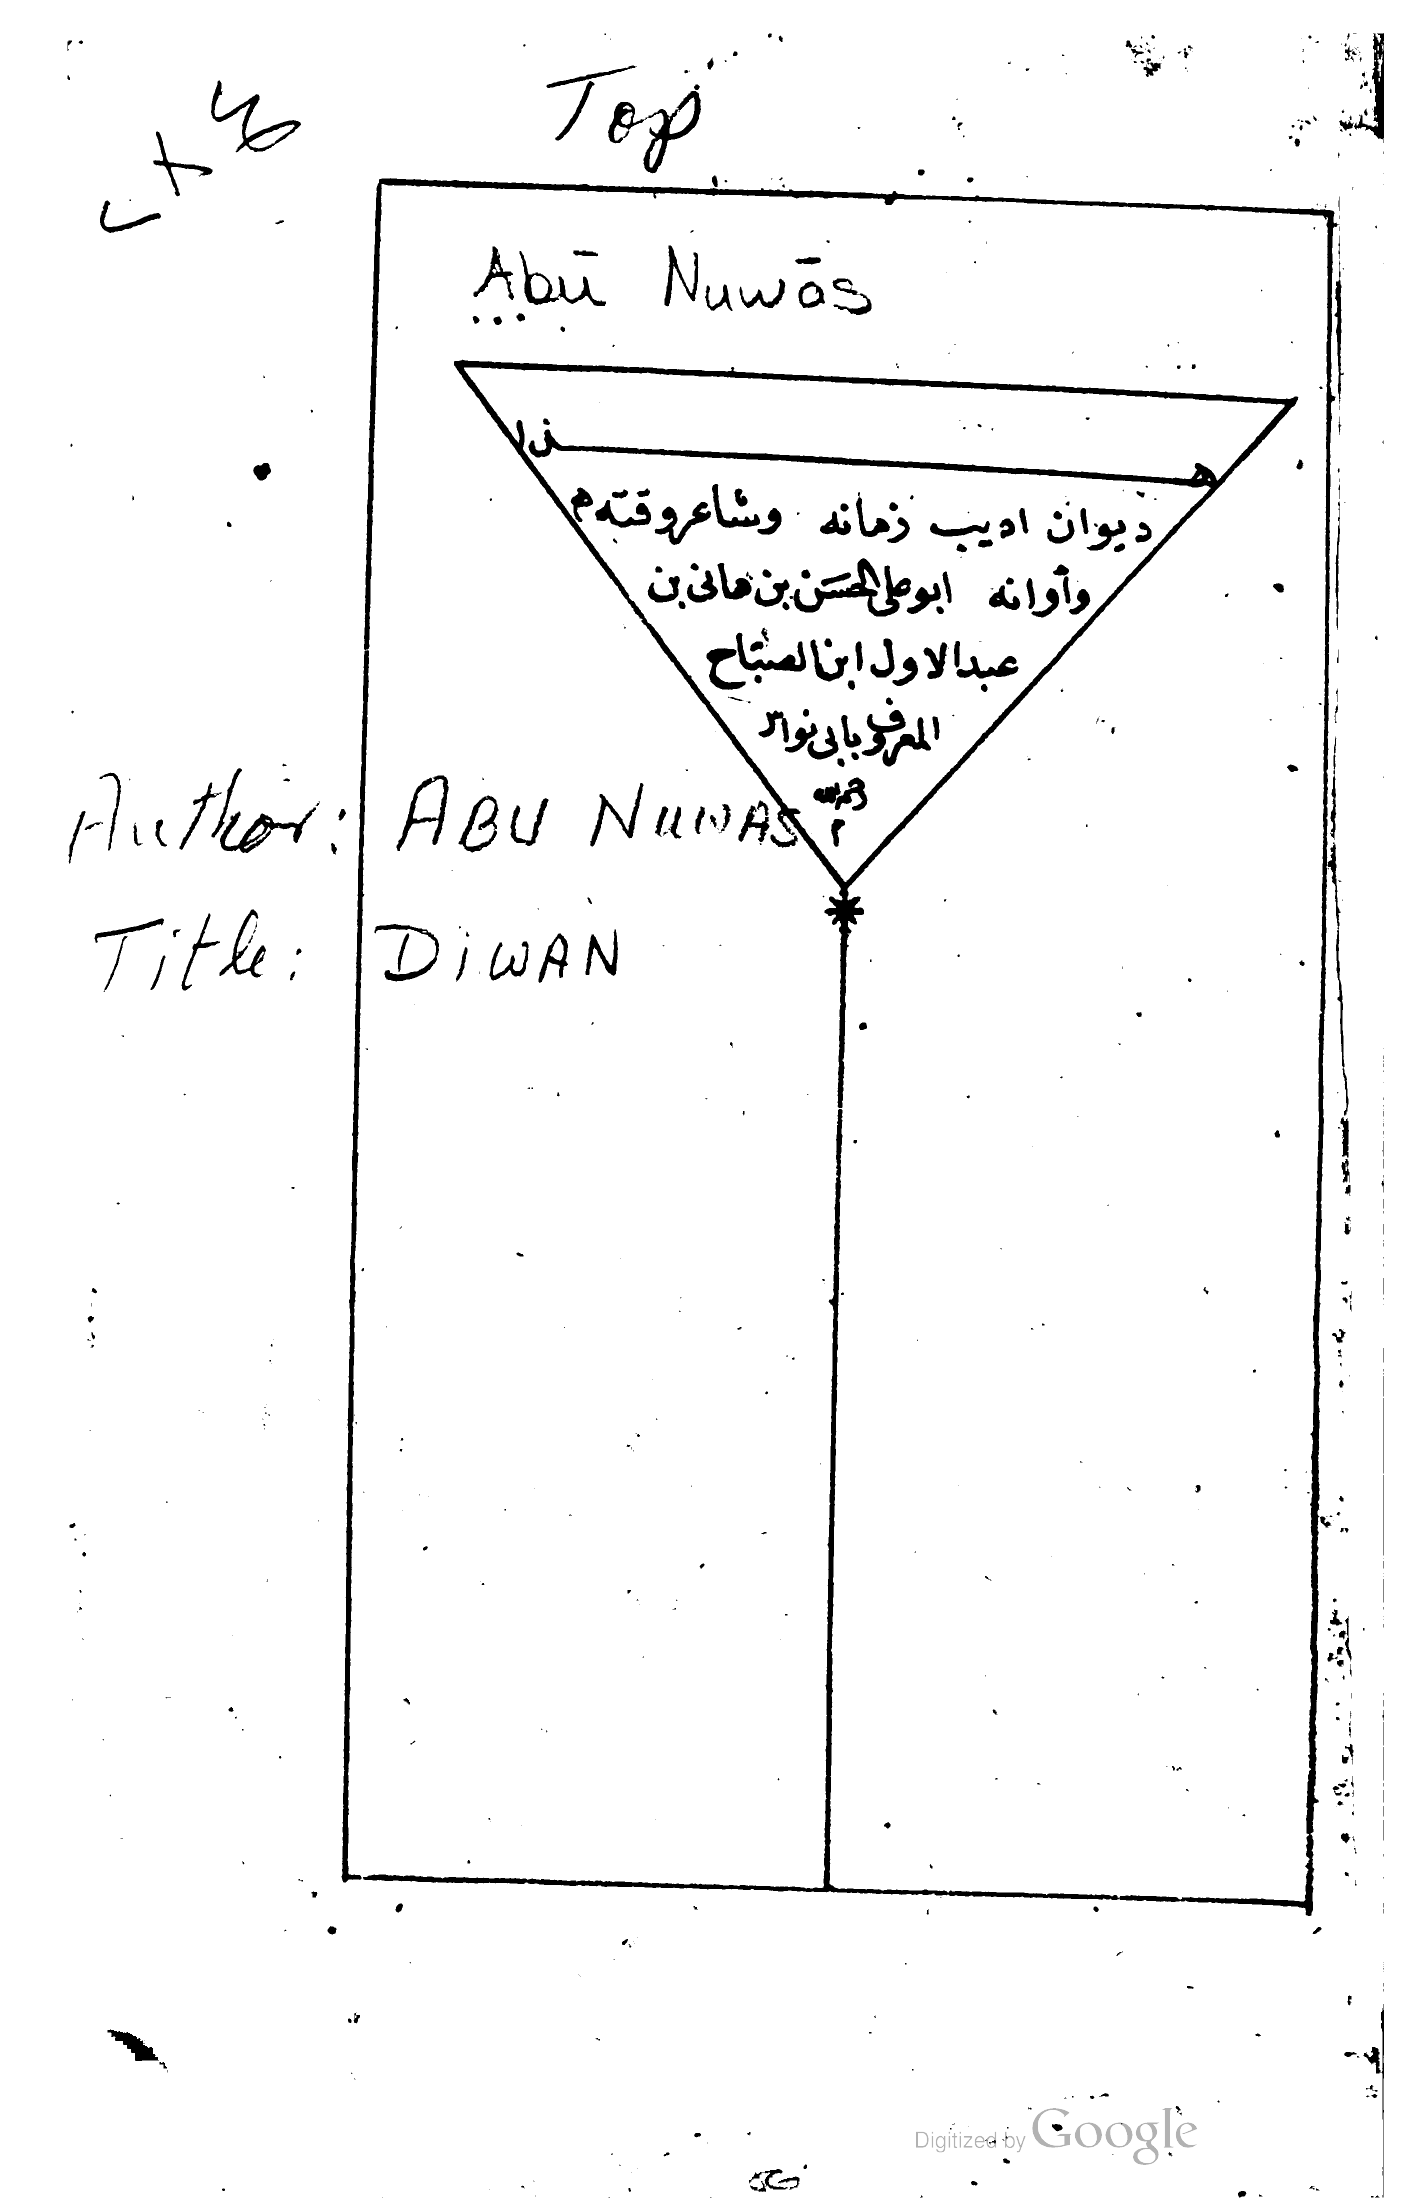 Top
Abū Nuwās
هــــــــذا
ديوان اديب زمانه وشاعر وقته م
وأوانه ابو على الحسن بن هانى بن
عبد الاول ابن الصباح
المعروف بابى نواس
م
Author: ABU NUWAS
Title: DIWAN
Digitized by Google